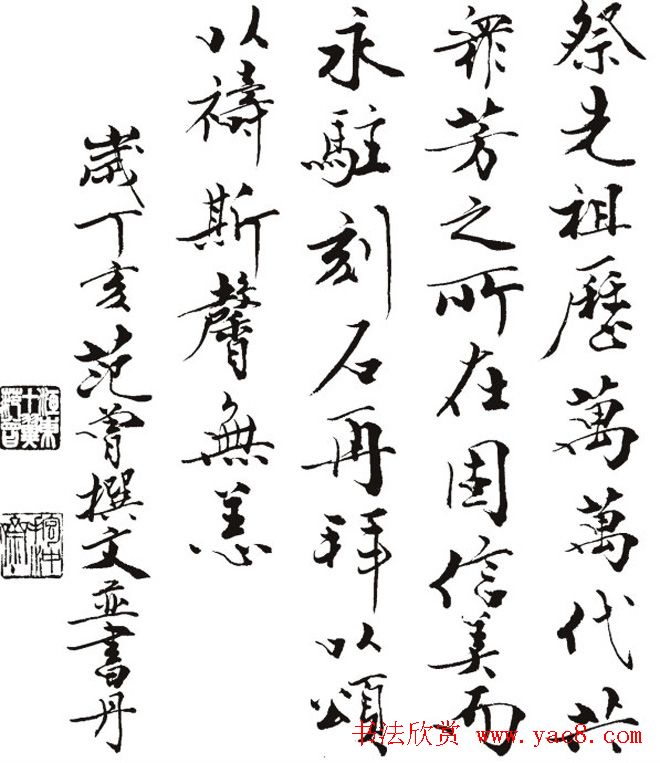 祭先祖歷萬萬代共
衆芳之所在固信美而
永駐刻石再拜以頌
以禱斯馨無恙
歲丁亥范曾撰文並書丹
江東十翼范曾
抱沖齋
书法欣赏 www.yac8.com